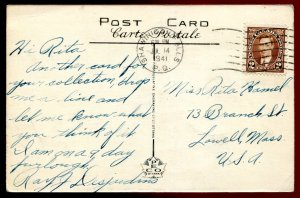 POST CARD
Carte Postale
SHAWINIGAN FALLS
14
1941
P.Q.
2 2
Hi Rita
Another card for
your collection, drop
me a line and
let me know what
you think of it
I am on a 9 day
furlough.
Ray J Desjardins
Miss Rita Hamel
73 Branch St.
Lowell, Mass.
U.S.A.
PECO